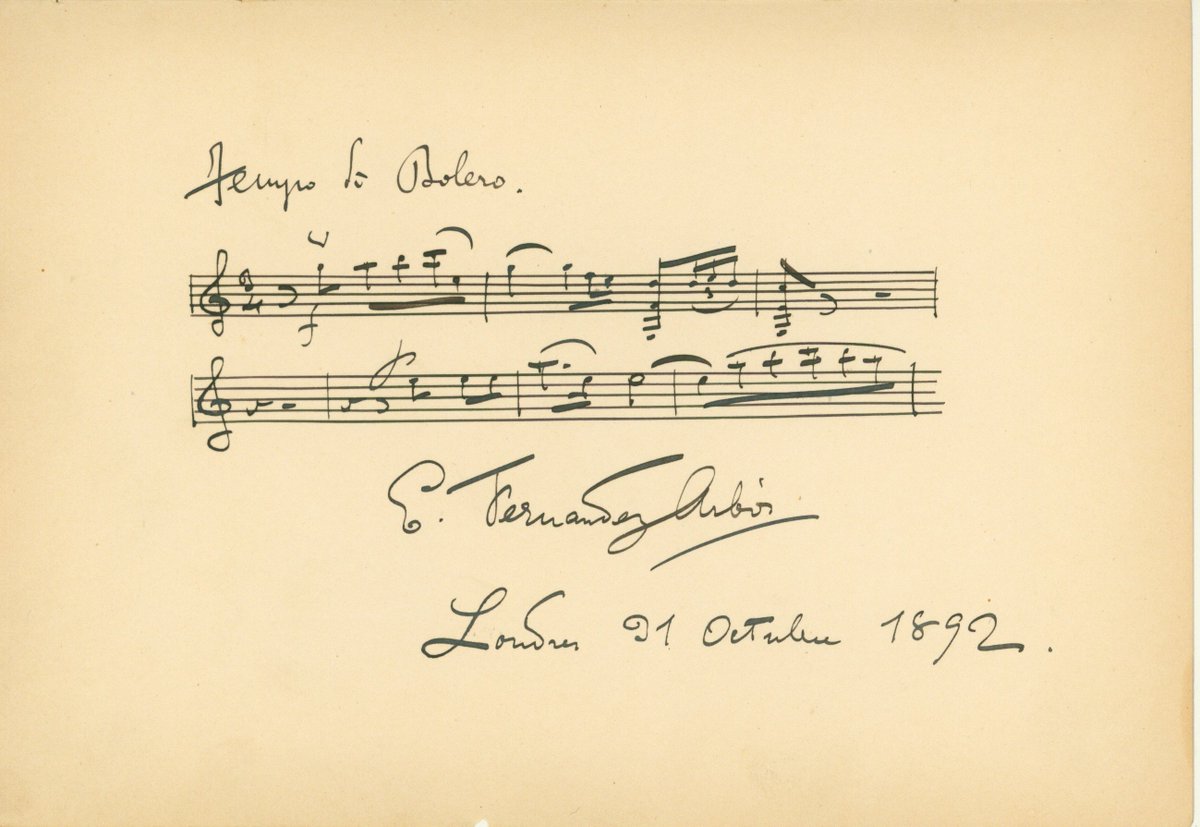 Tempo di Bolero.
E. Fernandez Arbós
Londres Octubre 1892.